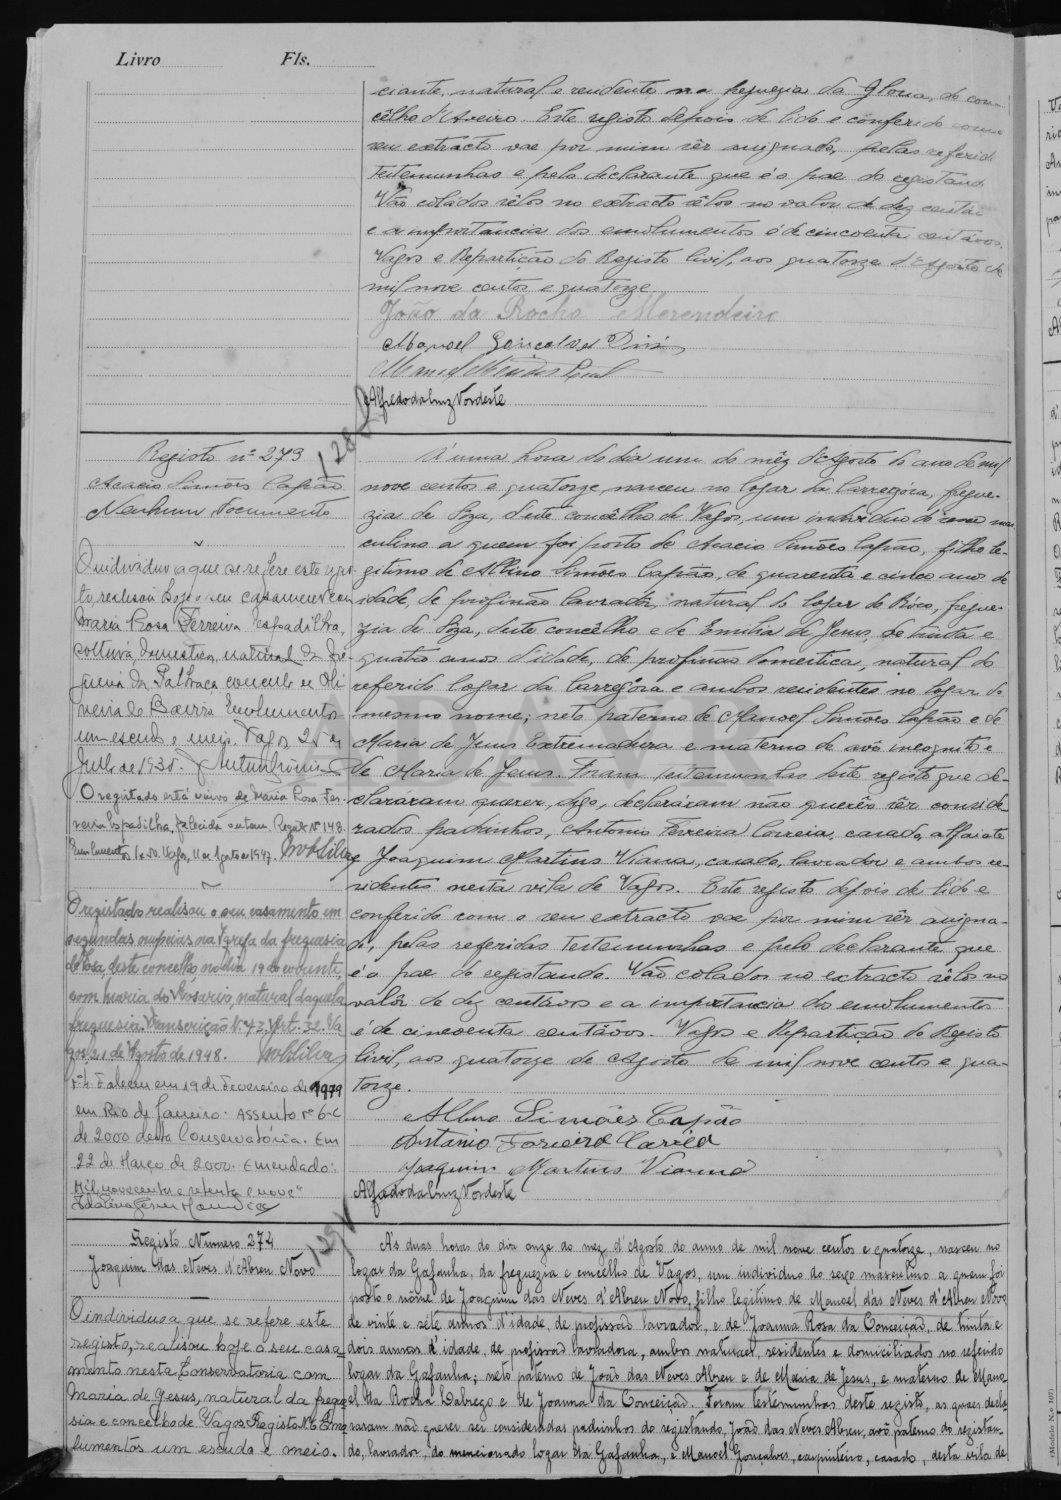 Livro Fls.
ciante, natural e residente na freguezia da Gloria, do con-
cêlho d'Aveiro. Este registo depois de lido e conferido com o
seu extracto vae por mim sêr assignado, pelas referidas
testemunhas e pelo declarante que é o pae do registando.
Vão colados sêlos no extracto sêlos no valor de dez centávos
e a importancia dos emolumentos é de cincoenta centávos.
Vagos e Repartição do Registo Civil, aos quatorze d'Agosto de
mil nove centos e quatorze.
João da Rocha Merendeiro
Manoel Gonçalves
Alfredo da Cruz Nordeste
128
Registo nº 273
Acacio Simões Capão
Nenhum documento
O individuo a que se refere este regis-
to, realisou hoje o seu casamento com
Maria Rosa Ferreira Espadilha,
solteira, domestica, natural da fre-
guesia da Palhaça, concelho de Oli-
veira do Bairro. Emolumentos
um escudo e meio. Vagos 25 de
Julho de 1935.
O registado está viuvo de Maria Rosa Fer-
reira Espadilha, falecida ontem. Registo Nº 148.
Emolumentos 1$50. Vagos, 11 de Agosto de 1947.
O registado realisou o seu casamento em
segundas nupcias na Igreja da freguesia
de Sosa, deste concelho no dia 19 do corrente,
com Maria do Rosario, natural daquela
freguesia. Transcrição N.º 42, Art. 32. Va-
gos 21 de Agosto de 1948.
Nº 4 Faleceu em 19 de Fevereiro de 1979
em Rio de Janeiro. Assento nº 6-C
de 2000 desta Conservatória. Em
22 de Março de 2000. Emendado:
"Mil novecentos e setenta e nove"
Á uma hora do dia um do mêz d'Agosto do ano de mil
nove centos e quatorze, nasceu no logar da Carregósa, fregue-
zia de Soza, d'este concêlho de Vagos, um individuo do sexo mas-
culino a quem foi posto de Acacio Simões Capão, filho le-
gitimo de Albino Simões Capão, de quarenta e cinco anos de
idade, de profissão lavradôr, natural do logar do Bôco, fregue-
zia de Soza, deste concêlho e de Emilia de Jesus, de trinta e
quatro anos d'idade, de profissão domestica, natural do
referido logar da Carregósa e ambos residentes no logar do
mesmo nome; neto paterno de Manoel Simões Capão e de
Maria de Jesus Extremadura e materno de avô incognito e
de Maria de Jesus. Foram testemunhas deste registo que de-
claráram querer, digo, declaráram não querêr sêr conside-
rados padrinhos, Antonio Ferreira Correia, casado, alfaiate
e Joaquim Martins Viana, casado, lavrador e ambos re-
sidentes nesta vila de Vagos. Este registo depois de lido e
conferido com o seu extracto vae por mim sêr assigna-
do, pelas referidas testemunhas e pelo declarante que
é o pae do registando. Vão colados no extracto sêlos no
valôr de dez centávos e a importancia dos emolumentos
é de cincoenta centávos. Vagos e Repartição do Registo
Civil, aos quatorze de Agosto de mil nove centos e qua-
torze.
Albino Simões Capão
Antonio Fereira Correia
Joaquim Martins Vianna
Alfredo da Cruz Nordeste
ADAVR
129
Registo Numero 274
Joaquim das Neves d'Abreu Novo
O individuo a que se refere este
registo, realisou hoje o seu casa-
mento nesta Conservatoria com
Maria de Jesus, natural da fregue-
sia e concelho de Vagos. Registo Nº 6. Emo-
lumentos um escudo e meio.
A's duas horas do dia onze do mez d'Agosto do anno de mil nove centos e quatorze, nasceu no
logar da Gafanha, da freguezia e concelho de Vagos, um individuo do sexo masculino a quem foi
posto o nome de Joaquim das Neves d'Abreu Novo, filho legitimo de Manoel das Neves d'Abreu Novo
de vinte e séte annos d'idade, de profissão lavrador, e de Joanna Rosa da Conceição, de trinta e
dois annos d'idade, de profissão lavradora, ambos naturaes, residentes e domiciliados no referido
logar da Gafanha; neto paterno de João das Neves Abreu e de Maria de Jesus, e materno de Mano-
el da Rocha Dabrego e de Joanna da Conceição. Foram testemunhas deste registo, as quaes decla-
raram não querer ser consideradas padrinhos do registando, João das Neves Abreu, avô paterno do registan-
do, lavrador, do mencionado logar da Gafanha, e Manoel Gonçalves, carpinteiro, casado, desta vila de